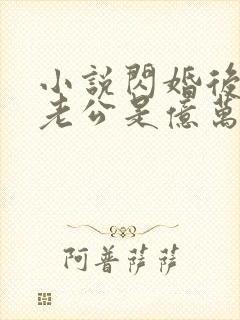 小說閃婚後
老公是億萬
阿普薩薩